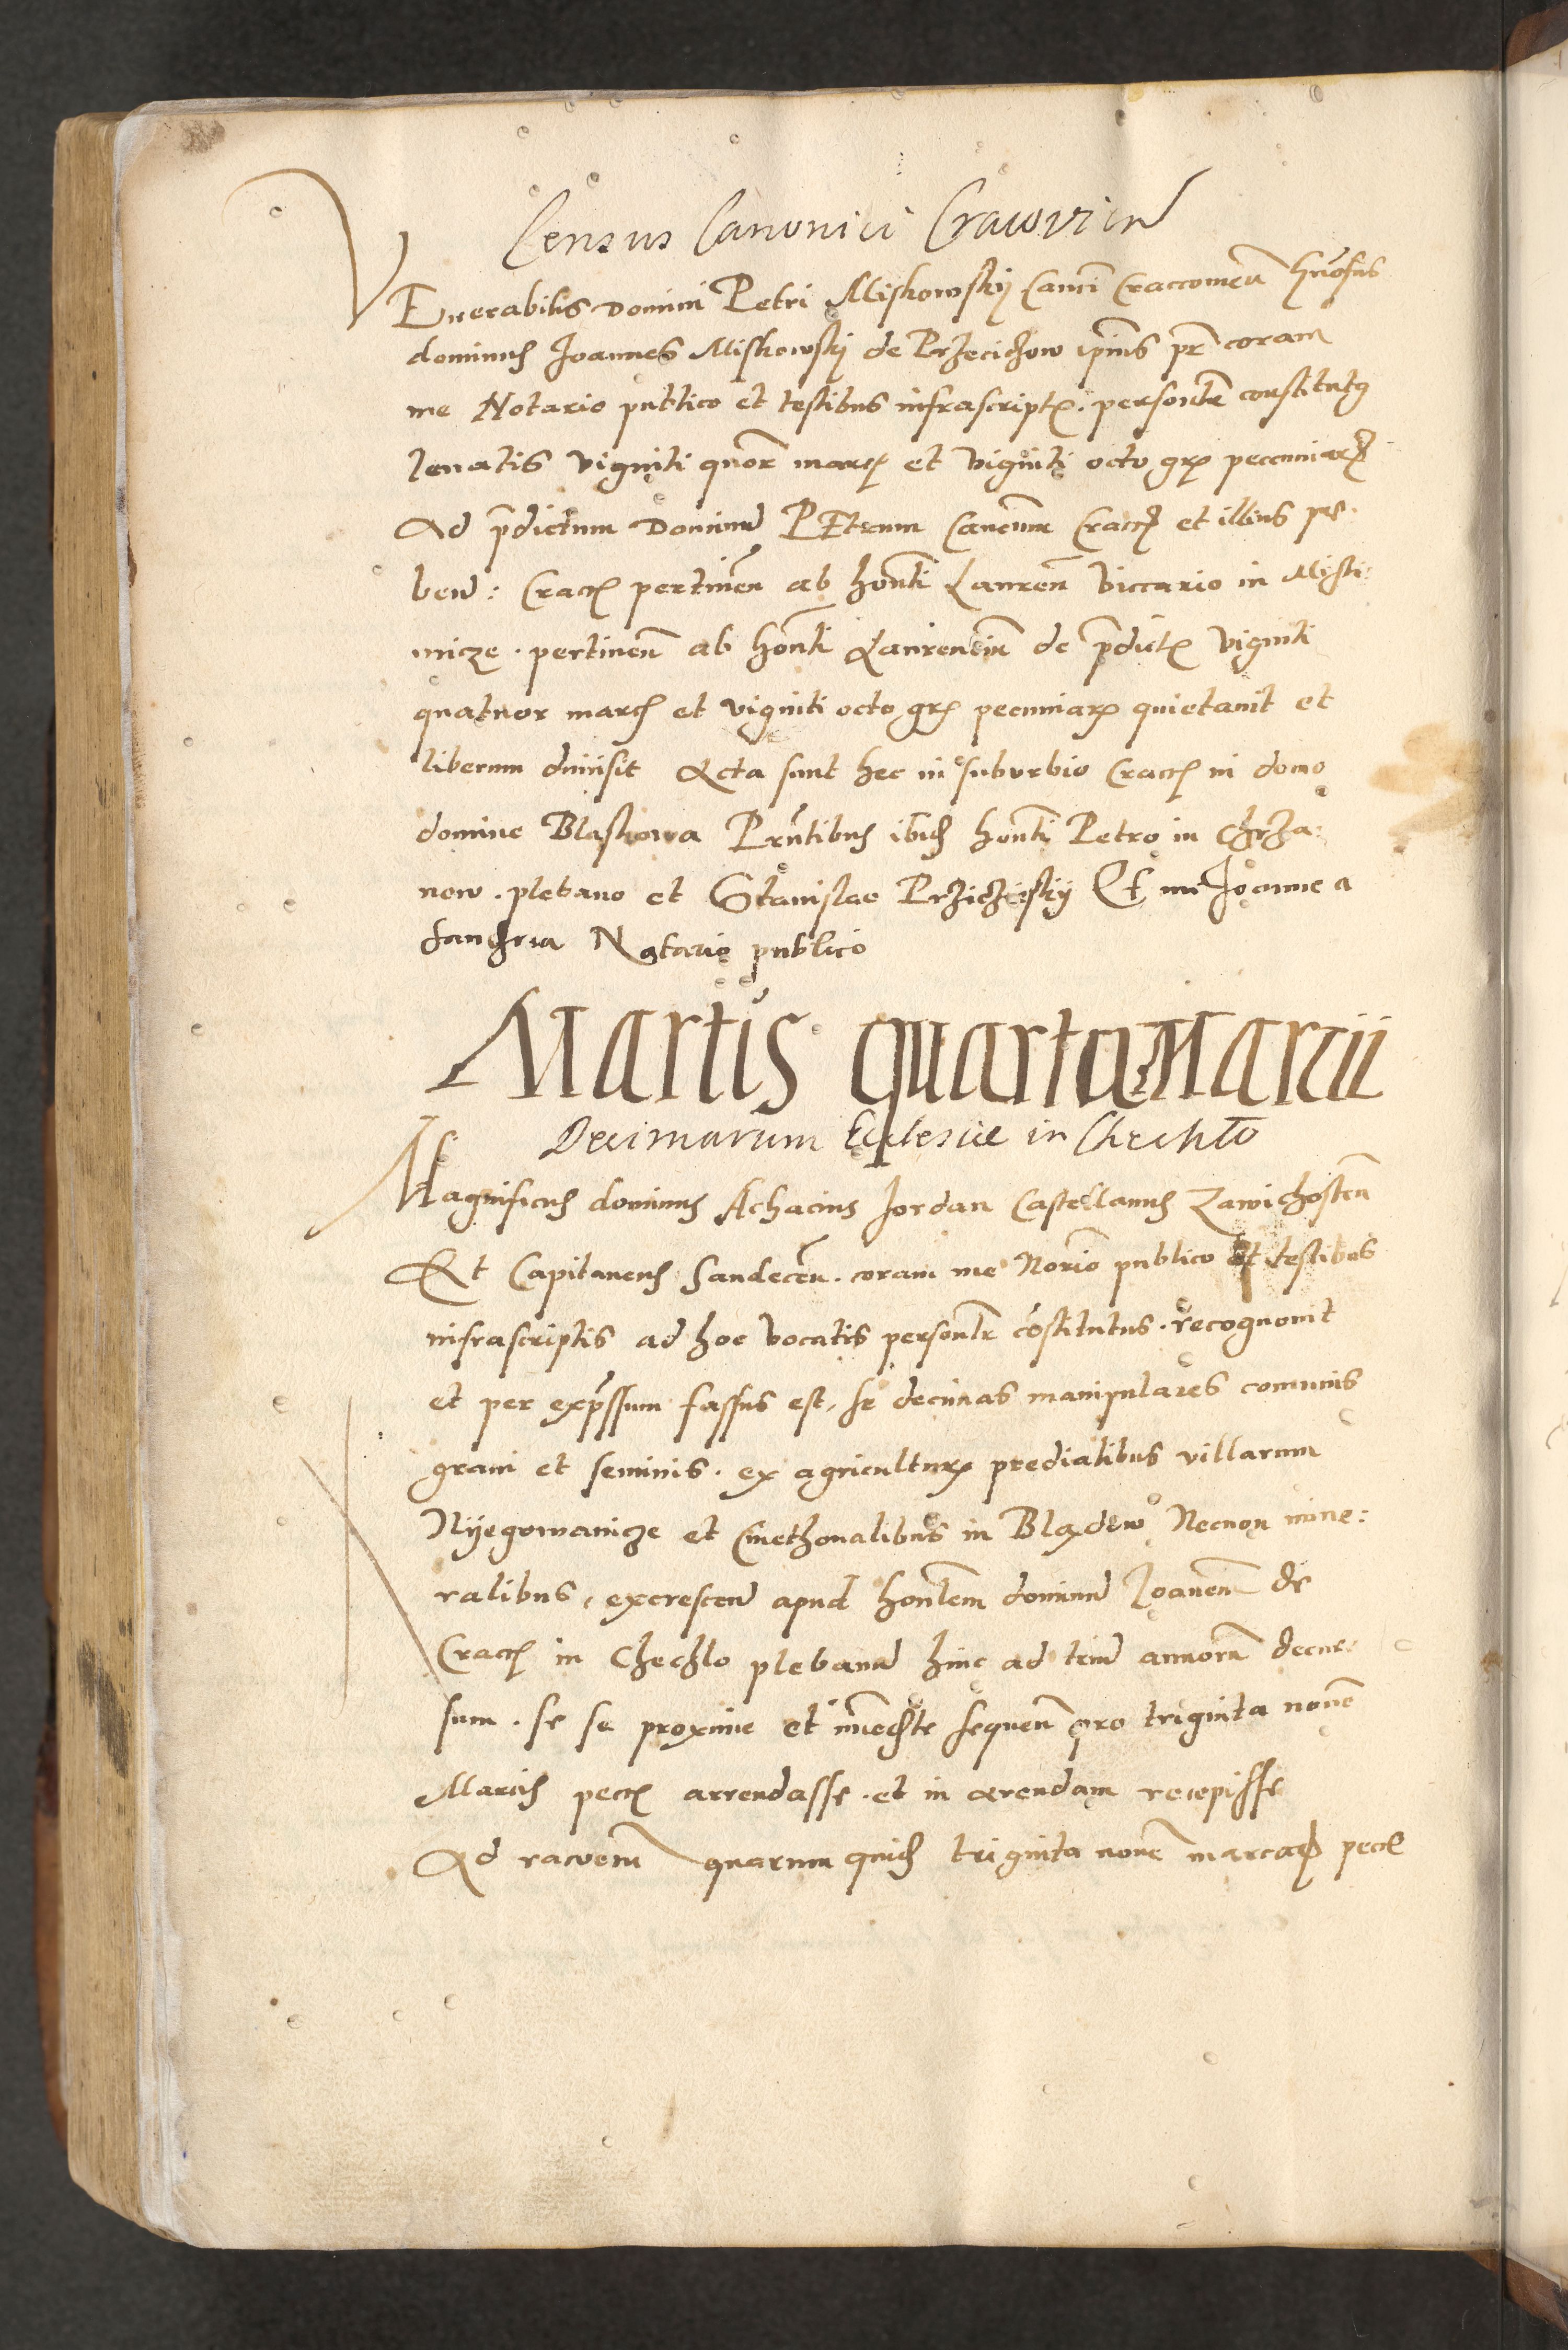 Census Canonici Cracovien
VEnerabilis Domini Petri Miskowskij Canci Craccovien
dominus Joannes Miskowskj de Przecizow ipius pr coram
me Notario publico et testibus infrascriptis. personlr constitutg
levatis viginti quor marcis et viginti octo gris pecuniarz
Ad pdictum Dominu PEtrum Cancum Cracz et illius pre-
bend: Cracz pertinen ab honti Lauren Viccario in Misli:
micze. pertinen ab honti Laurencium de pdictis viginti
quatuor marcis et viginti octo gris pecuniaris quietavit et
liberum dimisit Acta sunt hec in suburbio Cracz in domo
domine Blaskowa Prntibus ibid honti Petro in Chrza:
now. plebano et Stanislao et me Joanne a
Notario publico
Martis quarta Marcii
Decimarum Ecclesiae in Chechło
Magnificus dominus Achacius Jordan Castellanus Zawichosten
Et Capitaneus Sandecen. coram me Norio publico et testibus
infrascriptis ad hoc vocatis personlr costitutus. recognovit
et per expssum fassus est, se decimas manipulares comunis
grani et seminis. ex agricultur predialibus villarum
Nijegowanicze et Cmethonalibus in Blądow Necnon mine:
ralibus, excrescen apud honlem dominu Joanem de
Cracz in Chechlo plebanum hinc ad trium annoru decur-
sum. se se proxime et imediate sequen pro triginta nove
Marcis pecz arrendasse. et in arendam recepisse
Ad racioem quarum quid triginta nove marcar pecz